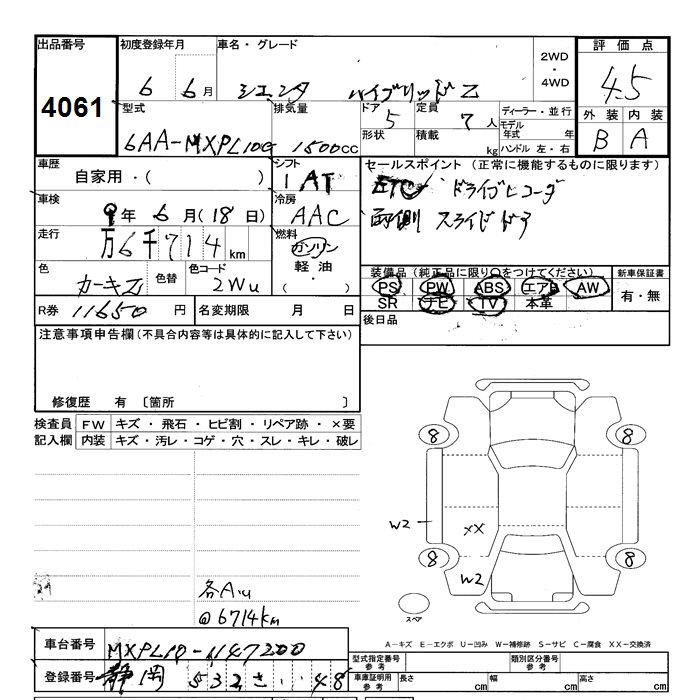 出品番号 初度登録年月 車名・グレード 2WD・4WD 評価点
4061 6 6月 シエンタ ハイブリッドZ 4.5
型式 排気量 ドア 定員 ディーラー・並行 外装 内装
6AA-MXPL10G 1500cc 5 7人 モデル年式 年 B A
形状 積載 kg ハンドル 左・右
車歴 シフト セールスポイント (正常に機能するものに限ります)
自家用・( ) 1AT ETC ドライブレコーダ
車検 冷房
9年6月(18日) AAC 両側 スライドドア
走行 燃料
万6千714km ガソリン 軽油・( )
色 色替 色コード 装備品 (純正品に限り○をつけてください) 新車保証書
カーキZ 2Wu PS PW ABS エアB AW 有・無
SR ナビ TV 本革
R券 116570円 名変期限 月 日 後日品
注意事項申告欄(不具合内容等は具体的に記入して下さい)
修復歴 有 〔箇所 〕
検査員 FW キズ・飛石・ヒビ割・リペア跡・×要
記入欄 内装 キズ・汚レ・コゲ・穴・スレ・キレ・破レ
8 8
W2 XX
8 8
W2
各Au
@6714km
スペア
A−キズ E−エクボ U−凹み W−補修跡 S−サビ C−腐食 XX−交換済
車台番号 MXPL10-1147200
型式指定番号 参考 類別区分番号 参考
登録番号 静岡 532 さ ・・48
車庫証明用 参考 長さ cm 幅 cm 高さ cm